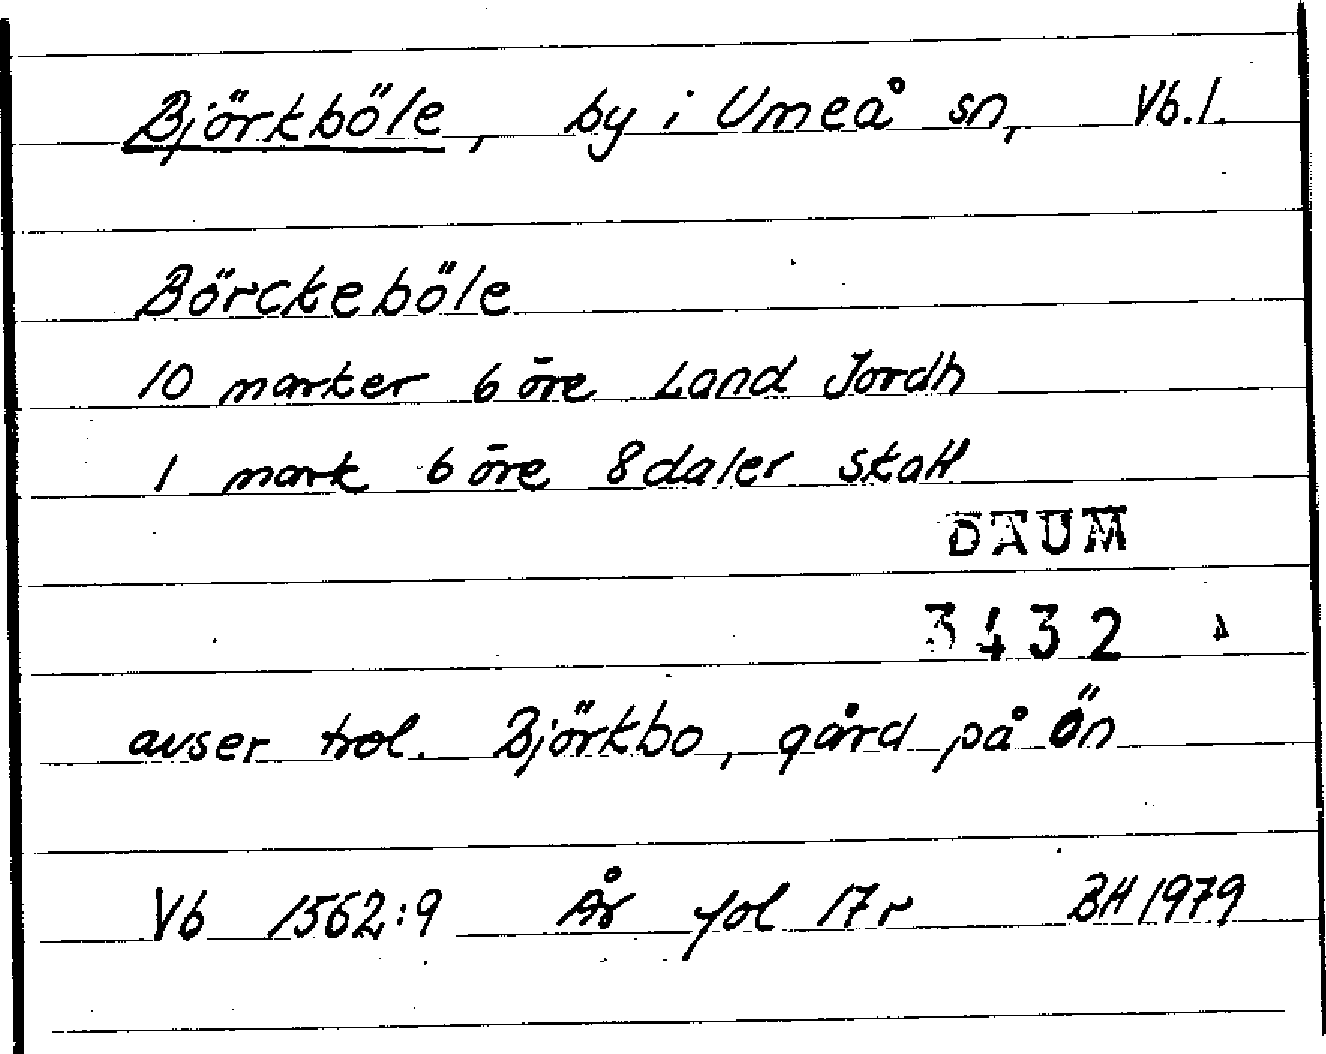 Björkböle, by i Umeå sn, Vb.l.
Börckeböle
10 marker 6 öre Land Jordh
1 mark 6 öre 8 daler skatt
DAUM
3432 A
avser trol. Björkbo, gård på Ön
Vb 1562:9 År fol 17 r BH 1979